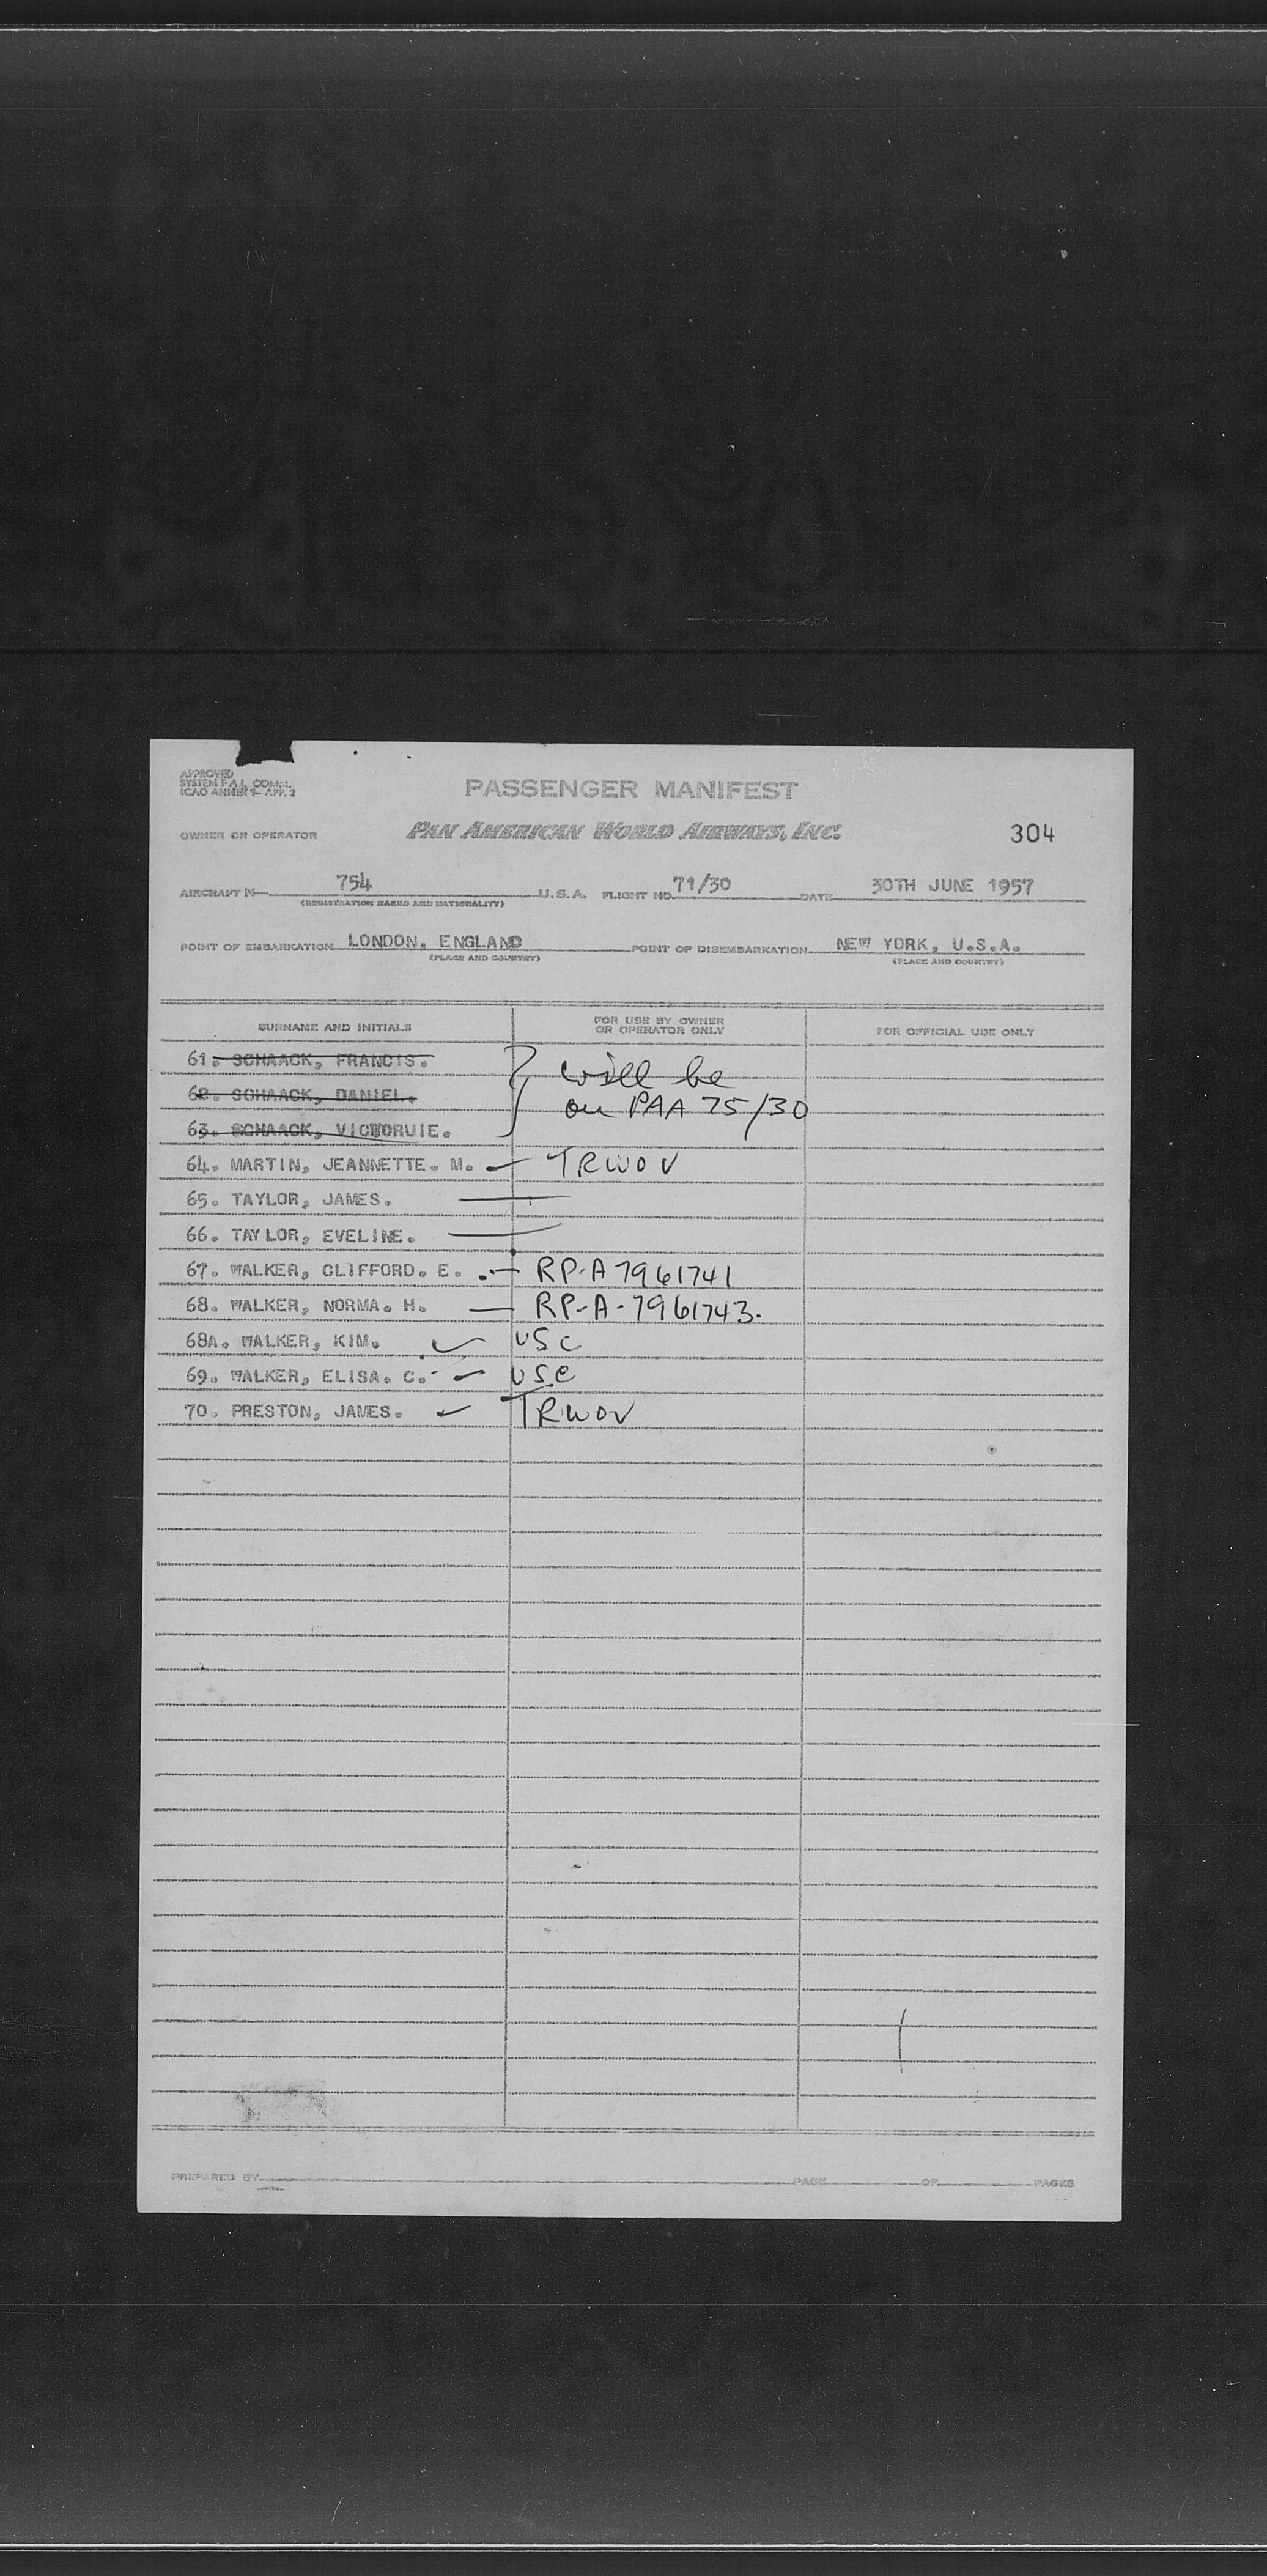 APPROVED
SYSTEM F.A.L. COMM.
ICAO ANNEX 9— APP. 2
PASSENGER MANIFEST
OWNER OR OPERATOR PAN AMERICAN WORLD AIRWAYS, INC. 304
AIRCRAFT N— 754 U.S.A. FLIGHT NO. 71/30 DATE 30TH JUNE 1957
(REGISTRATION MARKS AND NATIONALITY)
POINT OF EMBARKATION LONDON, ENGLAND POINT OF DISEMBARKATION NEW YORK, U.S.A.
(PLACE AND COUNTRY) (PLACE AND COUNTRY)
SURNAME AND INITIALS FOR USE BY OWNER OR OPERATOR ONLY FOR OFFICIAL USE ONLY
61. SCHAACK, FRANCIS. will be
62. SCHAACK, DANIEL. on PAA 75/30
63. SCHAACK, VICTORUIE.
64. MARTIN, JEANNETTE. M. — TRWOV
65. TAYLOR, JAMES. —
66. TAYLOR, EVELINE. —
67. WALKER, CLIFFORD. E. — RP-A7961741
68. WALKER, NORMA. H. — RP-A-7961743.
68A. WALKER, KIM. ✓ USC
69. WALKER, ELISA. C. — USC
70. PRESTON, JAMES. ✓ TRWOV
PREPARED BY PAGE OF PAGES